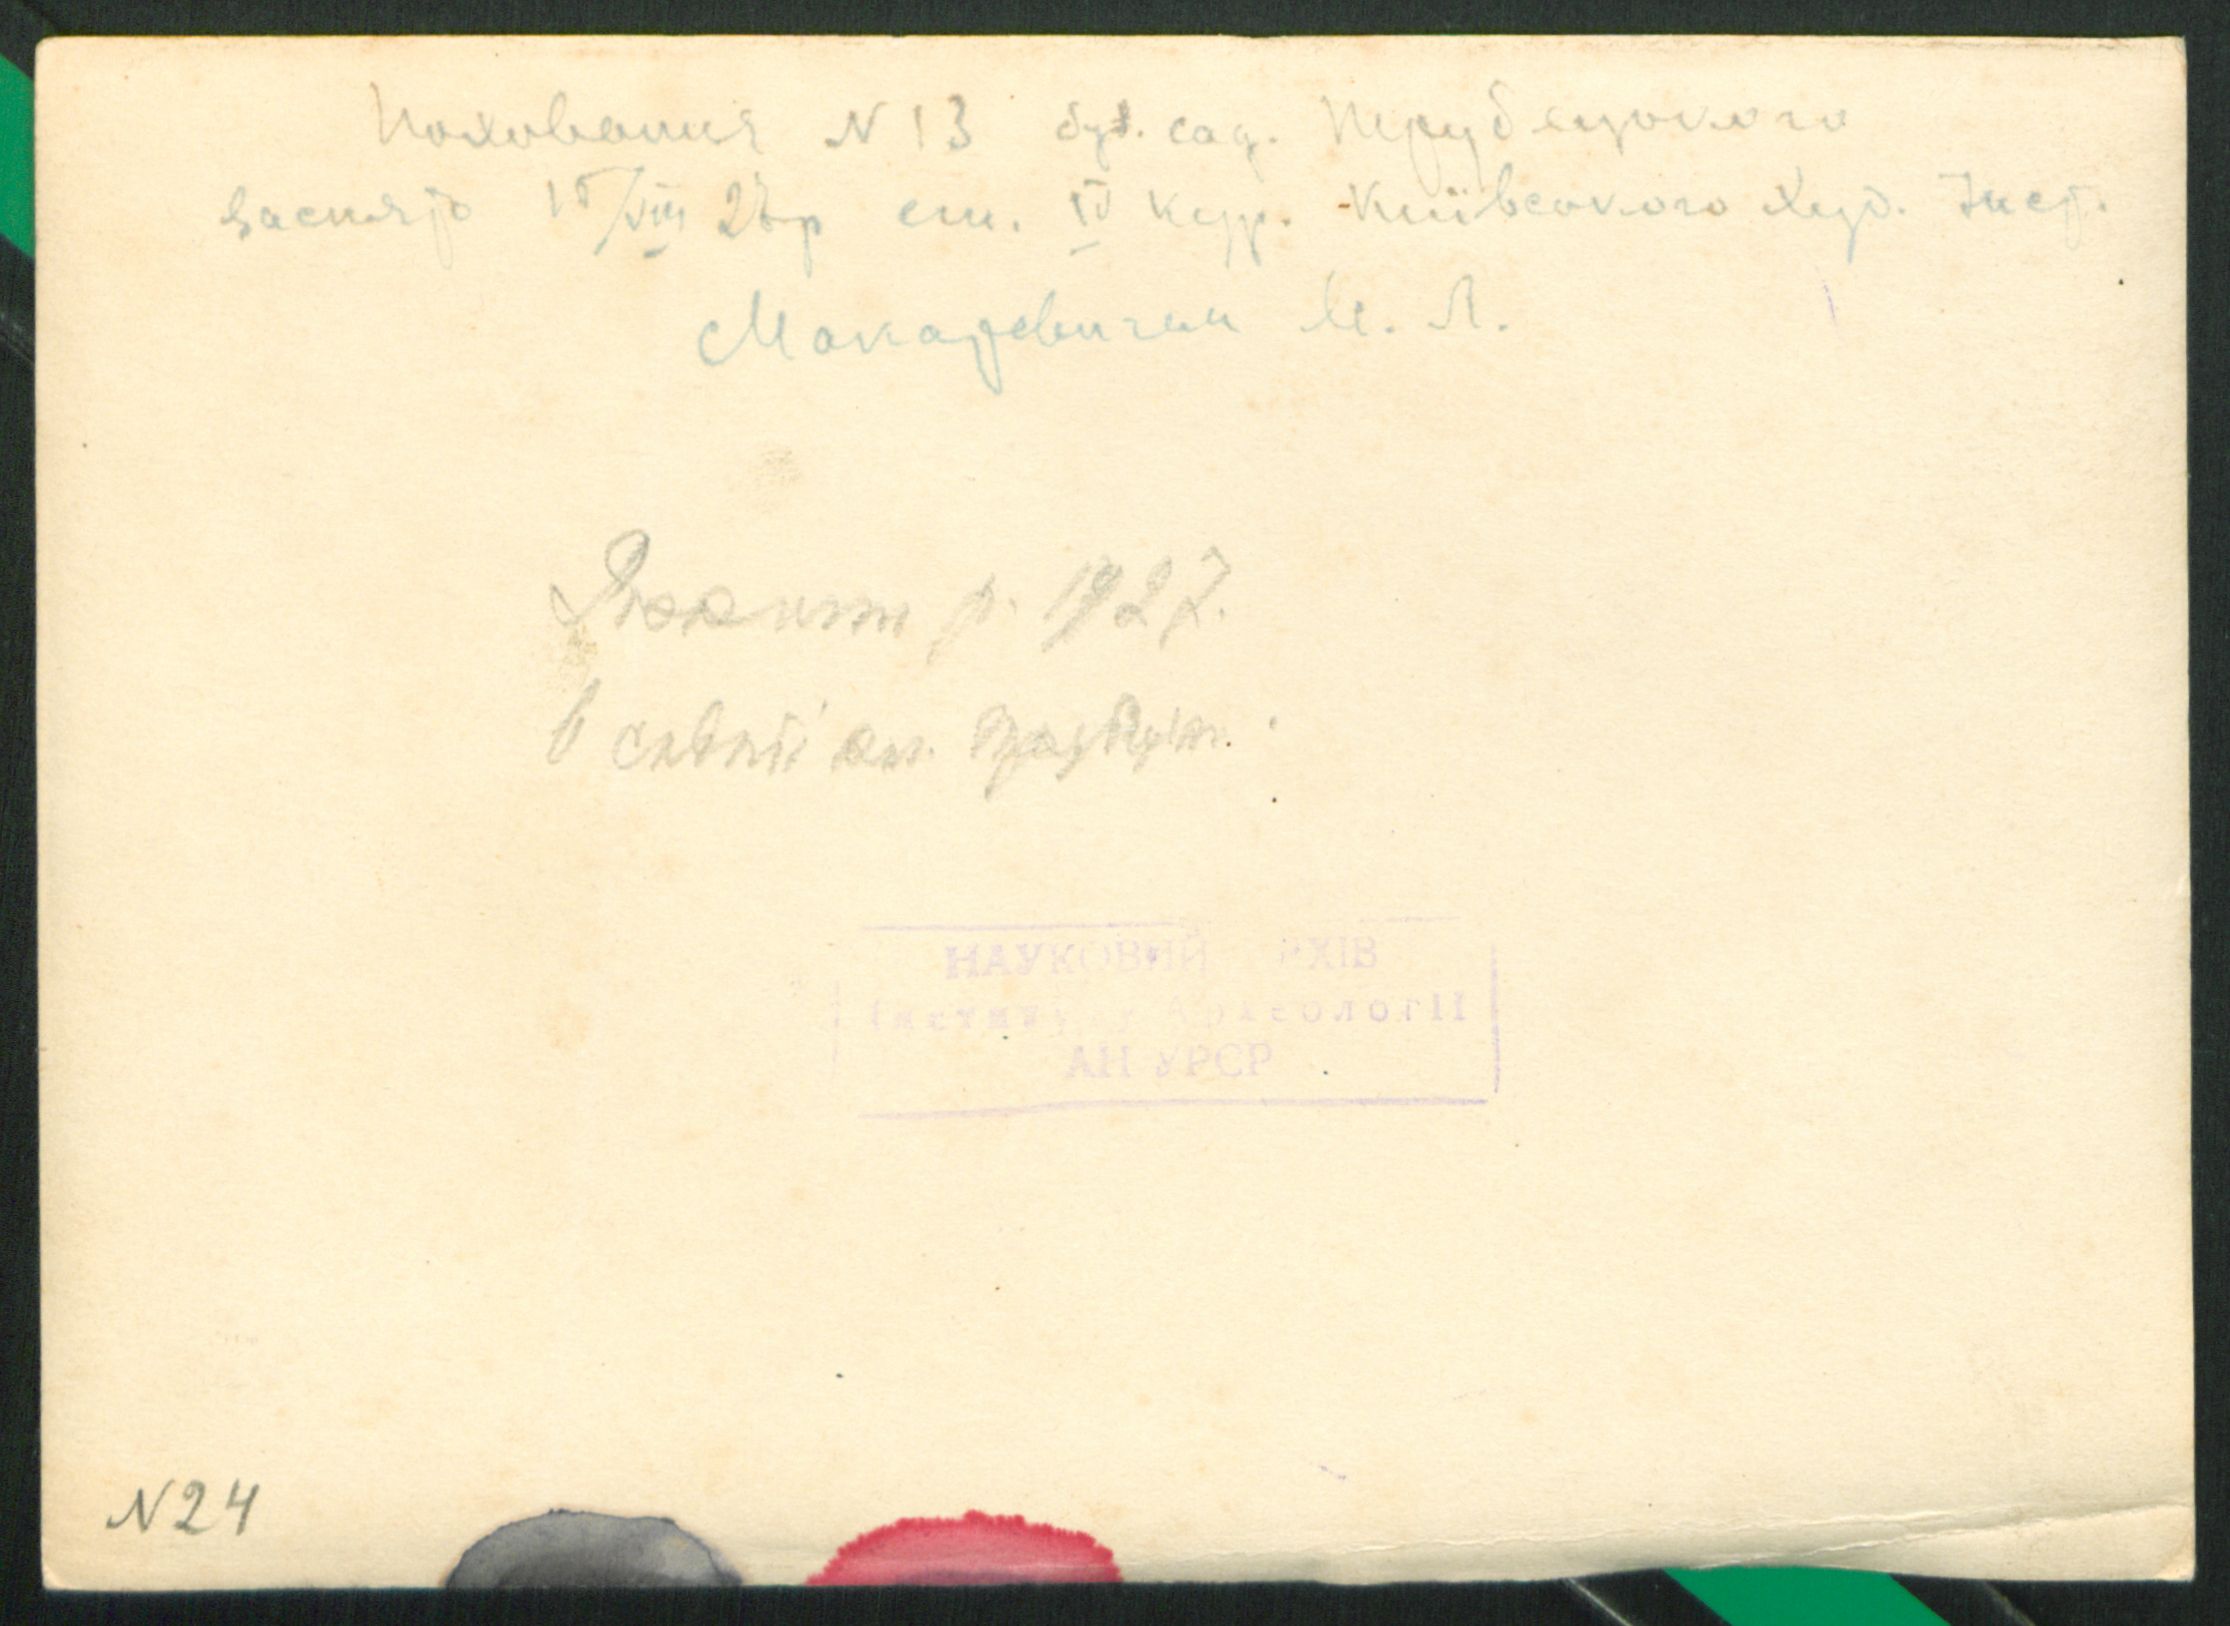 Поховання N 13 буд. сад. Трубецького
Заснято 15/VIII 27р ст. IV кур. Київського Худ. Інст.
Макаревичем М. Л.
р. 1927.
в
НАУКОВИЙ АРХІВ
Інституту Археології
АН УРСР
N 24